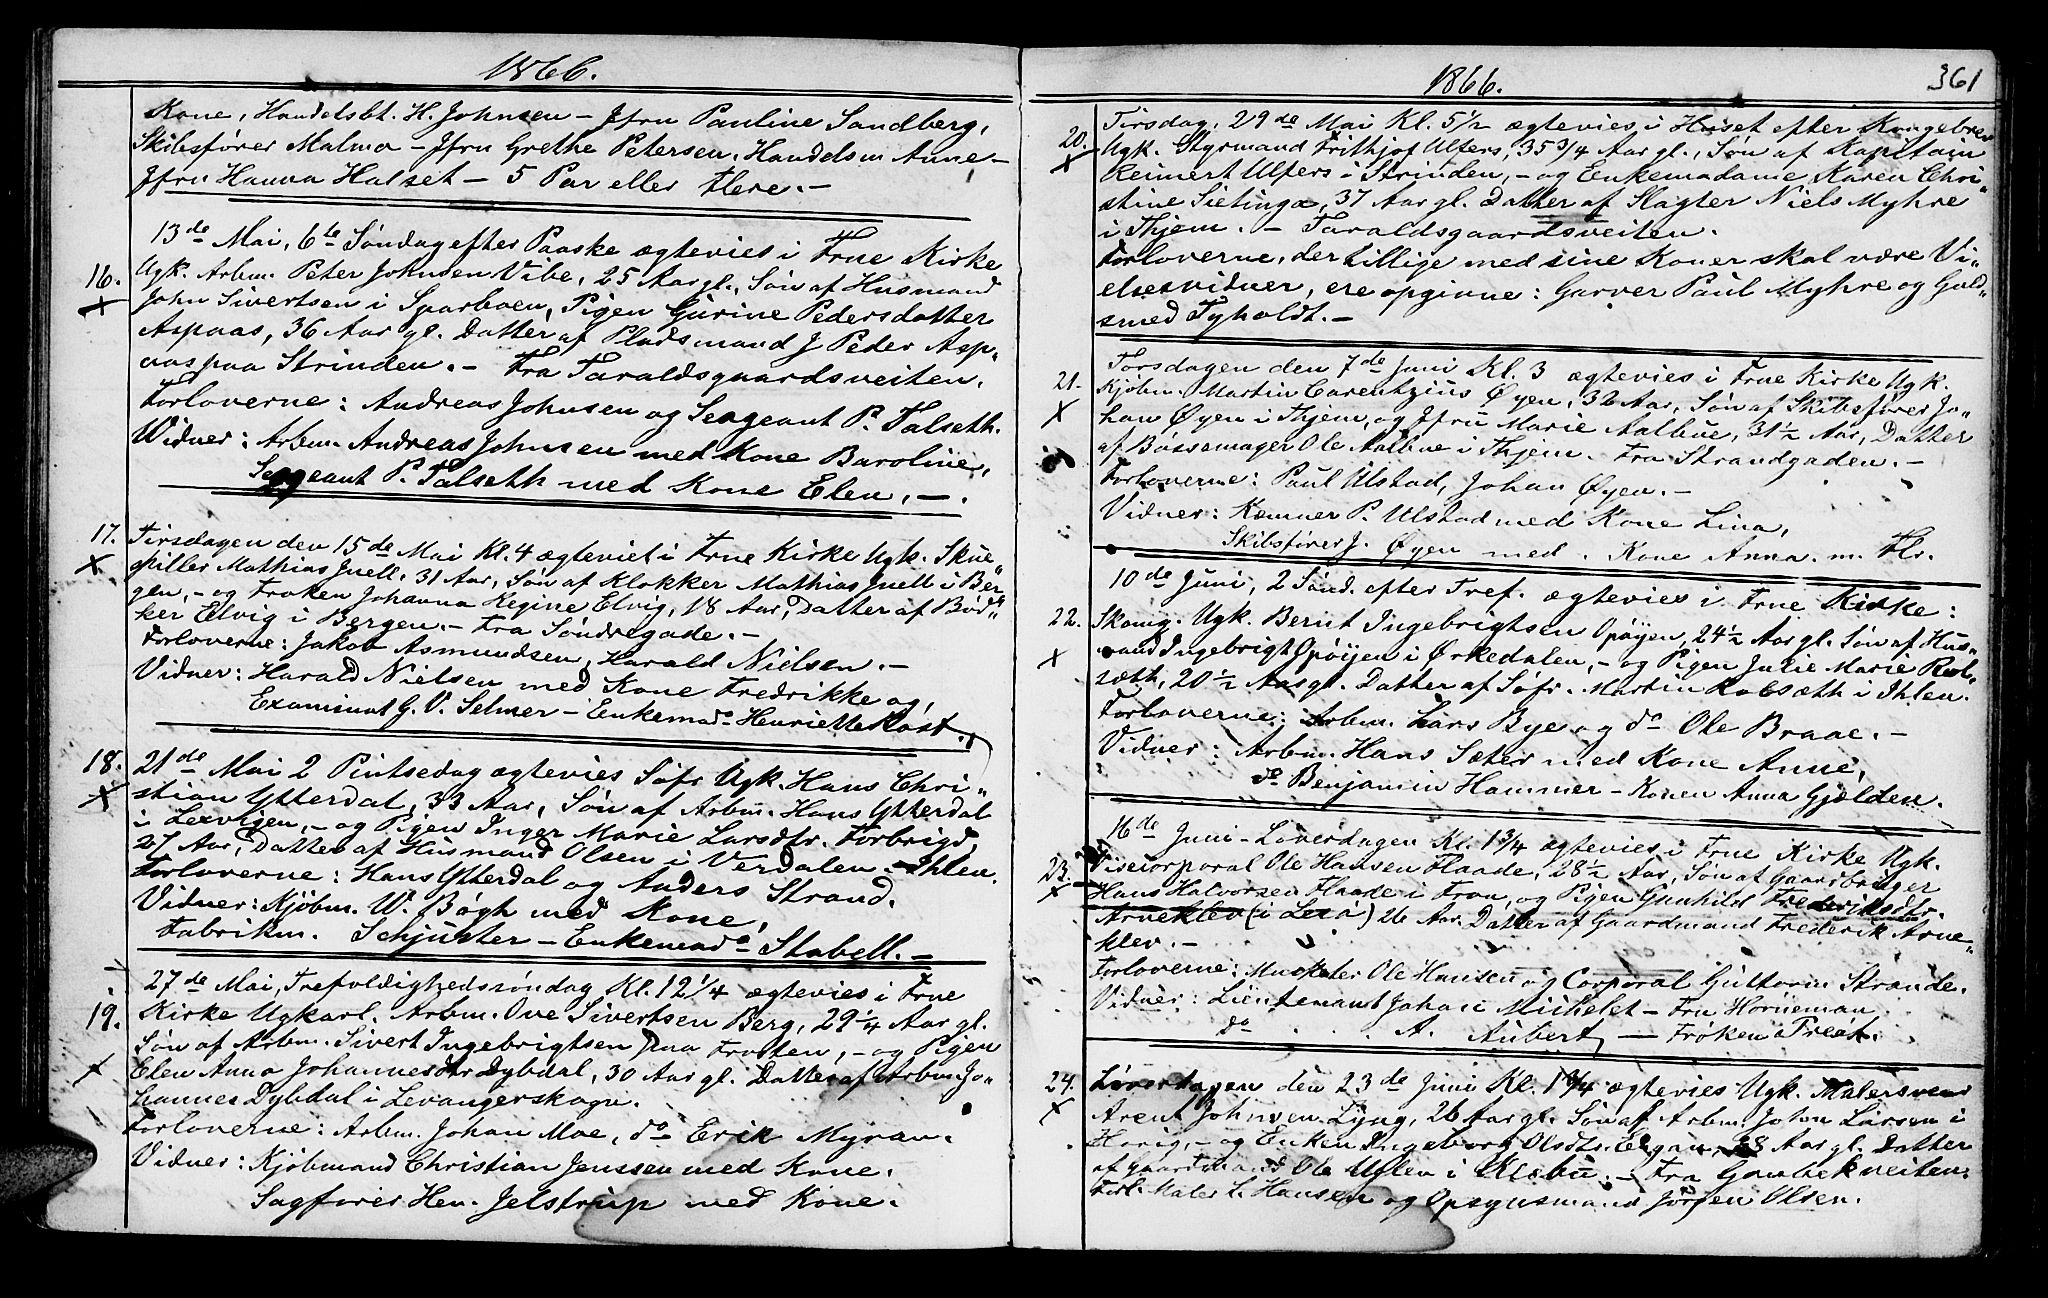 1866.
Kone, Handelsbt. H. Johnsen – Jfru Pauline Sandberg,
Skibsfører Malmo – Jfru Grethe Petersen. Handelsm Aune –
Jfru Hanna Halset – 5 Par eller Flere. –
13de Mai, 6te Søndag efter Paaske ægtevies i Frue Kirke
16. Ugk. Arbm. Peter Johnsen Vibe, 25 Aar gl., Søn af Husmand
John Sivertsen i Sparboen, Pigen Gurine Pedersdatter
Aspaas, 36 Aar gl. Datter af Pladsmand J Peder Asp„
aas paa Strinden. – Fra Taraldsgaardsveiten.
Forloverne: Andreas Johnsen og Sergeant P. Talseth.
Vidner: Arbm. Andreas Johnsen med Kone Baroline,
Sergeant P. Talseth med Kone Elen, –.
17. Tirsdagen den 15de Mai Kl. 4 ægteviet i Frue Kirke Ugk. Skue„
spiller Mathias Juell, 31 Aar, Søn af Klokker Mathias Juell i Ber„
gen, – og Frøken Johanna Regine Elvig, 18 Aar, Datter af Bød„
ker Elvig i Bergen. – Fra Søndregade. –
Forloverne: Jakob Asmundsen, Harald Nielsen. –
Vidner: Harald Nielsen med Kone Fredrikke og,
Examinat G. V. Selmer – Enkemade Henriette Kost.
18. 21de Mai 2 Pintsedag ægtevies Søfr Ugk. Hans Chri„
stian Ytterdal, 33 Aar, Søn af Arbm. Hans Ytterdal
i Lexvigen, – og Pigen Inger Marie Larsdtr. Forbrigd,
27 Aar, Datter af Husmand Olsen i Verdalen. – Ihlen.
Forloverne: Hans Ytterdal og Anders Strand.
Vidner: Kjøbm. W. Bøgh med Kone,
Fabrikm. Schjuster – Enkemade Stabell. –
27de Mai, Trefoldighedssøndag Kl. 12 1/4 ægtevies i Frue
19. Kirke Ugkarl. Arbm. Ove Sivertsen Berg, 29 1/4 Aar gl.
Søn af Arbm. Sivert Ingebrigtsen paa Frosten, – og Pigen
Elen Anna Johannesdtr Dybdal, 30 Aar gl. Datter af Arbm. Jo„
hannes Dybdal i Levangerskogn.
Forloverne: Arbm. Johan Moe, do Erik Myran.
Vidner: Kjøbmand Christian Jenssen med Kone.
Sagfører Hen. Jelstrup med Kone.
1866. 361
20. Tirsdag, 29de Mai Kl. 5 1/2 ægtevies i Huset efter Kongebrev
Ugk. Styrmand Frithjof Ulfers, 35 3/4 Aar gl., Søn af Kapitain
Reinert Ulfers i Strinden, – og Enkemadame Karen Chri„
stine Sietinga, 37 Aar gl. Datter af Slagter Niels Myhre
i Thjem. – Taraldsgaardsveiten.
Forloverne, der tillige med sine Koner skal være Vi„
elsesvidner, ere opgivne: Garver Paul Myhre og Guld„
smed Tyholdt. –
Torsdagen den 7de Juni Kl. 3 ægtevies i Frue Kirke Ugk.
21. Kjøbm. Martin Carentzius Øyen, 32 Aar, Søn af Skibsfører Jo„
han Øyen i Thjem, og Jfru Marie Aalbue, 31 1/2 Aar, Datter
af Bøssemager Ole Aalbue i Thjem. Fra Strandgaden. –
Forloverne: Paul Ulstad, Johan Øyen. –
Vidner: Kæmner P. Ulstad med Kone Lina,
Skibsfører J. Øyen med. Kone Anna. m. Flr.
10de Juni, 2 Sønd. efter Tref. ægtevies i Frue Kirke:
22. Skomg. Ugk. Bernt Ingebrigtsen Opøyen, 24 1/2 Aar gl. Søn af Hus„
mand Ingebrigt Opøyen i Ørkedalen, – og Pigen Julie Marie Rab„
sæth, 20 1/2 Aar gl. Datter af Søfr. Martin Rabsæth i Ihlen.
Forloverne: Arbm. Lars Bye og do Ole Braae. –
Vidner: Arbm. Hans Sæter med Kone Anne,
do Benjamin Hammer – Konen Anna Gjølden.
16de Juni – Løverdagen Kl. 1 3/4 ægtevies i Frue Kirke Ugk.
23. Vicecorporal Ole Hansen Flaade, 28 1/2 Aar, Søn af Gaardbruger
Hans Halvorsen Flaade i Fron, og Pigen Gunhild Frederiksdtr.
Arneklev (i Lexa) 26 Aar. Datter af Gaardmand Frederik Arne„
klev. –
Forloverne: Musketer Ole Hansen og Corporal Guttorm Strande.
Vidner: Lieutenant Johan Michelet – Fru Horneman
do A. Aubert – Frøken
24. Løverdagen den 23de Juni Kl. 1 3/4 ægtevies Ugk. Malersvend
Arent Johnsen Lyng, 26 Aar gl. Søn af Arbm. John Larsen i
– og Enken Ingeborg Olsdtr. 28 Aar gl. Datter
af Gaardmand Ole Uften i Klæbu. – Fra Gaubekveiten.
Forl. Maler L. Hansen og Opsynsmand Jørgen Olsen.